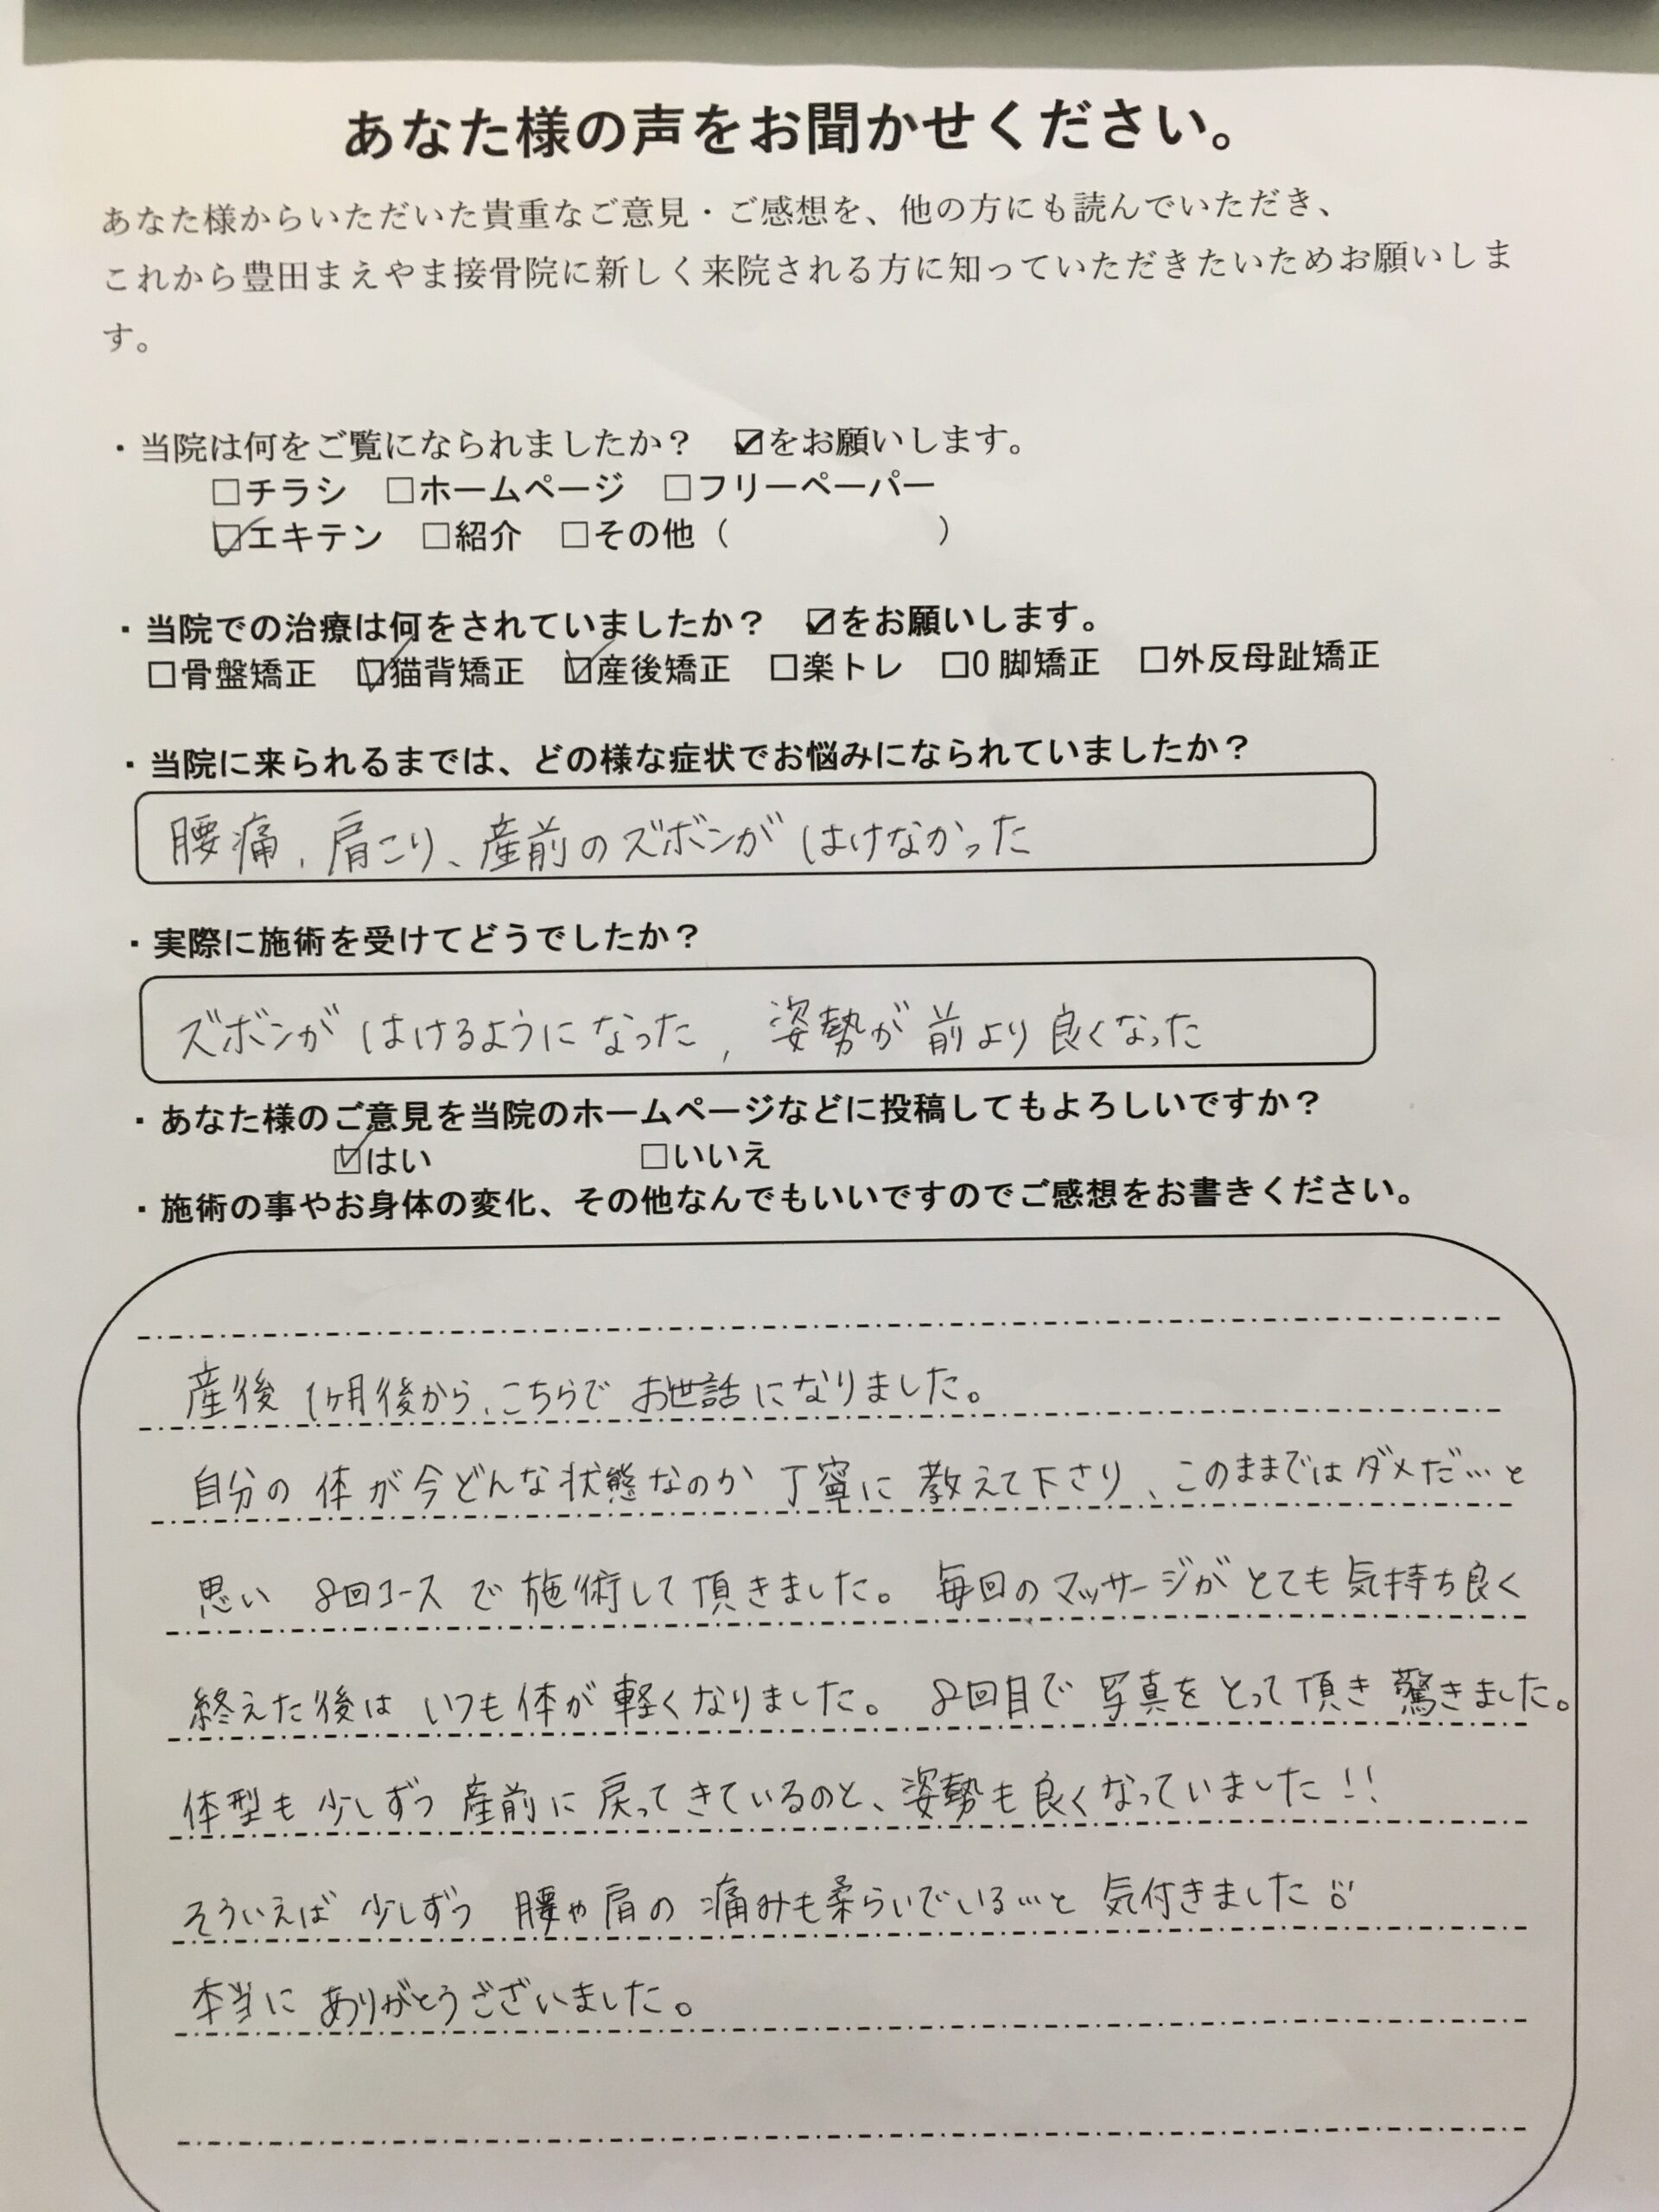 あなた様の声をお聞かせください。
あなた様からいただいた貴重なご意見・ご感想を、他の方にも読んでいただき、
これから豊田まえやま接骨院に新しく来院される方に知っていただきたいためお願いしま
す。
・当院は何をご覧になられましたか？ ☑をお願いします。
□チラシ □ホームページ □フリーペーパー
☑エキテン □紹介 □その他（ ）
・当院での治療は何をされていましたか？ ☑をお願いします。
□骨盤矯正 ☑猫背矯正 ☑産後矯正 □楽トレ □O脚矯正 □外反母趾矯正
・当院に来られるまでは、どの様な症状でお悩みになられていましたか？
腰痛、肩こり、産前のズボンがはけなかった
・実際に施術を受けてどうでしたか？
ズボンがはけるようになった、姿勢が前より良くなった
・あなた様のご意見を当院のホームページなどに投稿してもよろしいですか？
☑はい □いいえ
・施術の事やお身体の変化、その他なんでもいいですのでご感想をお書きください。
産後1ヶ月後から、こちらでお世話になりました。
自分の体が今どんな状態なのか丁寧に教えて下さり、このままではダメだ…と
思い 8回コースで施術して頂きました。毎回のマッサージがとても気持ち良く
終えた後はいつも体が軽くなりました。8回目で写真をとって頂き驚きました。
体型も少しずつ産前に戻ってきているのと、姿勢も良くなっていました!!
そういえば少しずつ腰や肩の痛みも柔らいでいる…と気付きました
本当にありがとうございました。